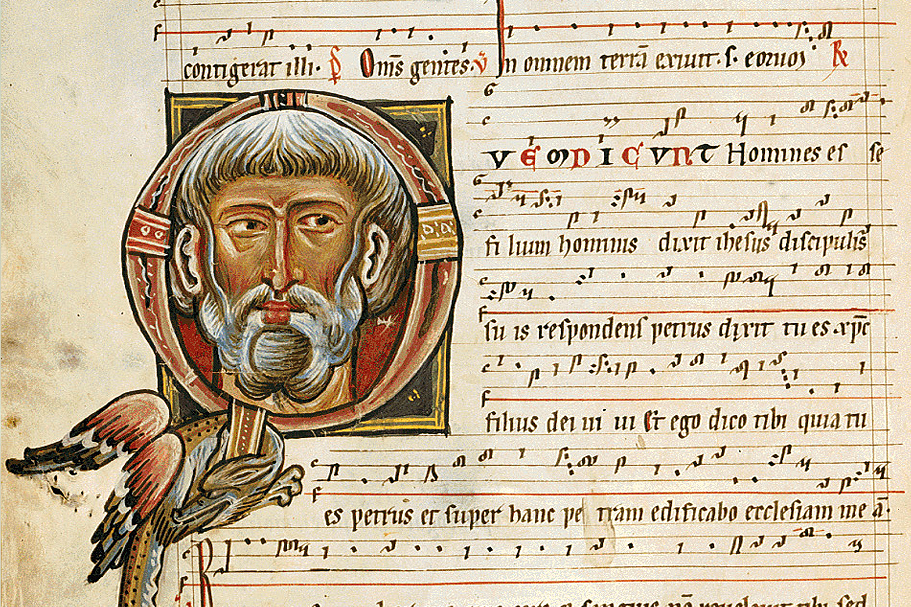 contigerat illi. Om̄s gentes. v In omnem terrā exivit. s. eoruoꝫ
VEM DICUNT Homines es se
fi lium hominis dixit ihesus discipulis
su is respondens petrus dixit tu es xp̄c
filius dei vi vi Et ego dico tibi quia tu
es petrus et super hanc pe tram edificabo ecclesiam me ā.